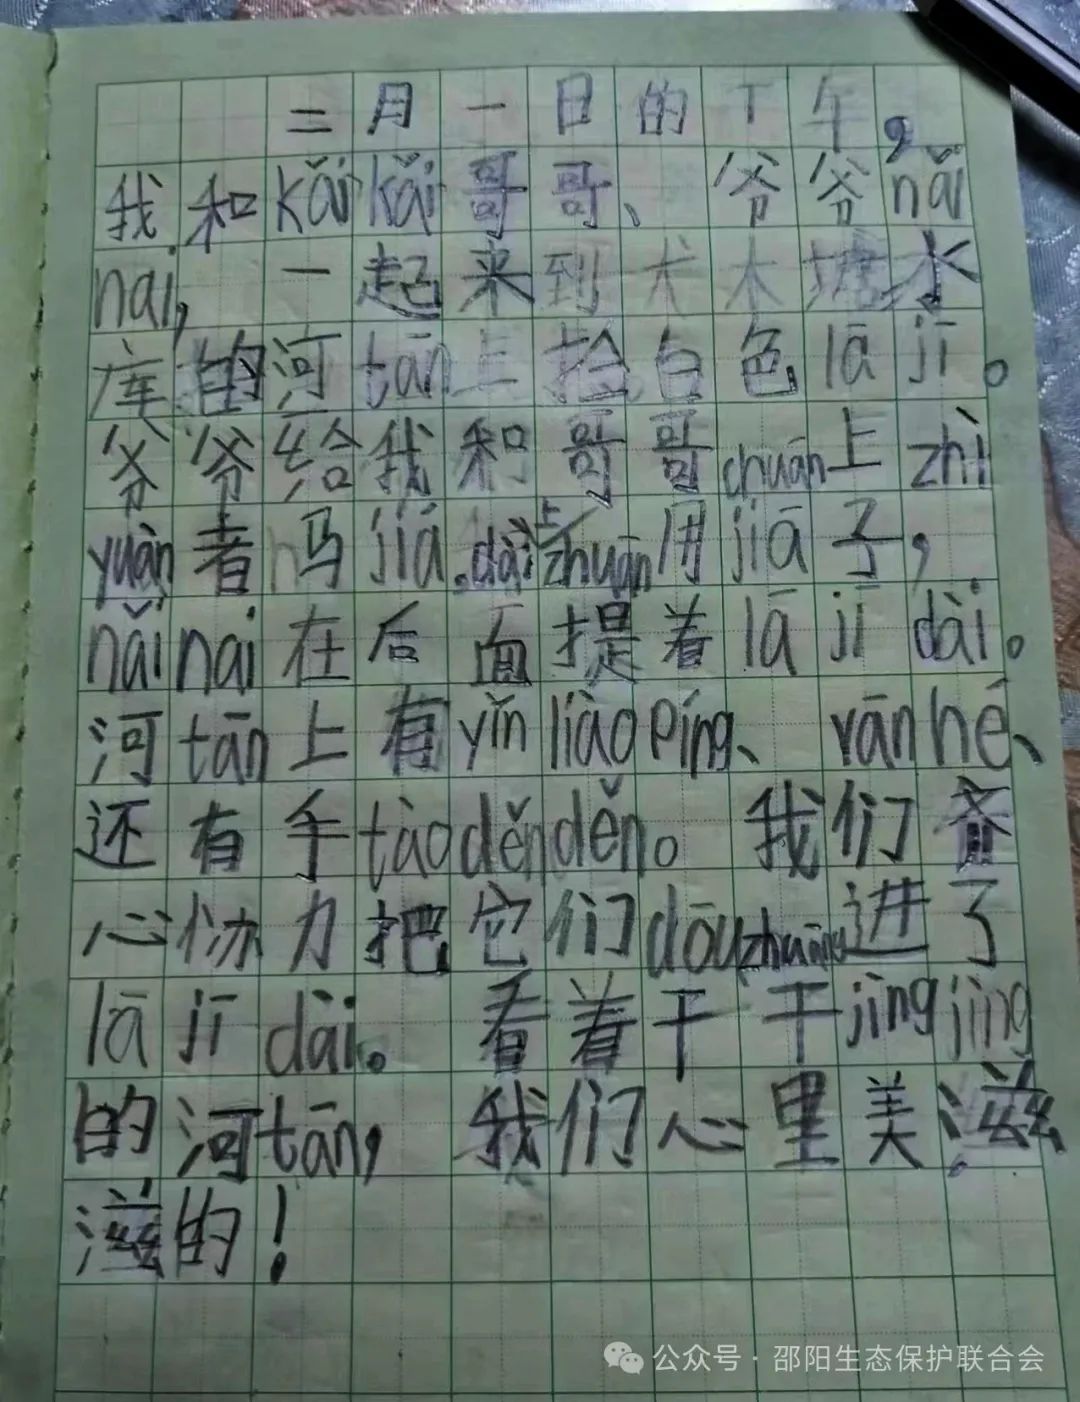 三月一日的下午，
我和kǎi kǎi哥哥、爷爷nǎi
nai，一起来到犬木塘水
库的河tān上捡白色lā jī。
爷爷给我和哥哥chuān上zhì
yuàn者马jiá.dài上zhuān用jiā子，
nǎi nai在后面提着lā jī dài。
河tān上有yǐn liào píng、vān hé、
还有手tào děn děn。我们齐
心协力把它们dōu zhuāng进了
lā jī dài。看着干干jìng jìng
的河tān，我们心里美滋
滋的！
公众号·邵阳生态保护联合会